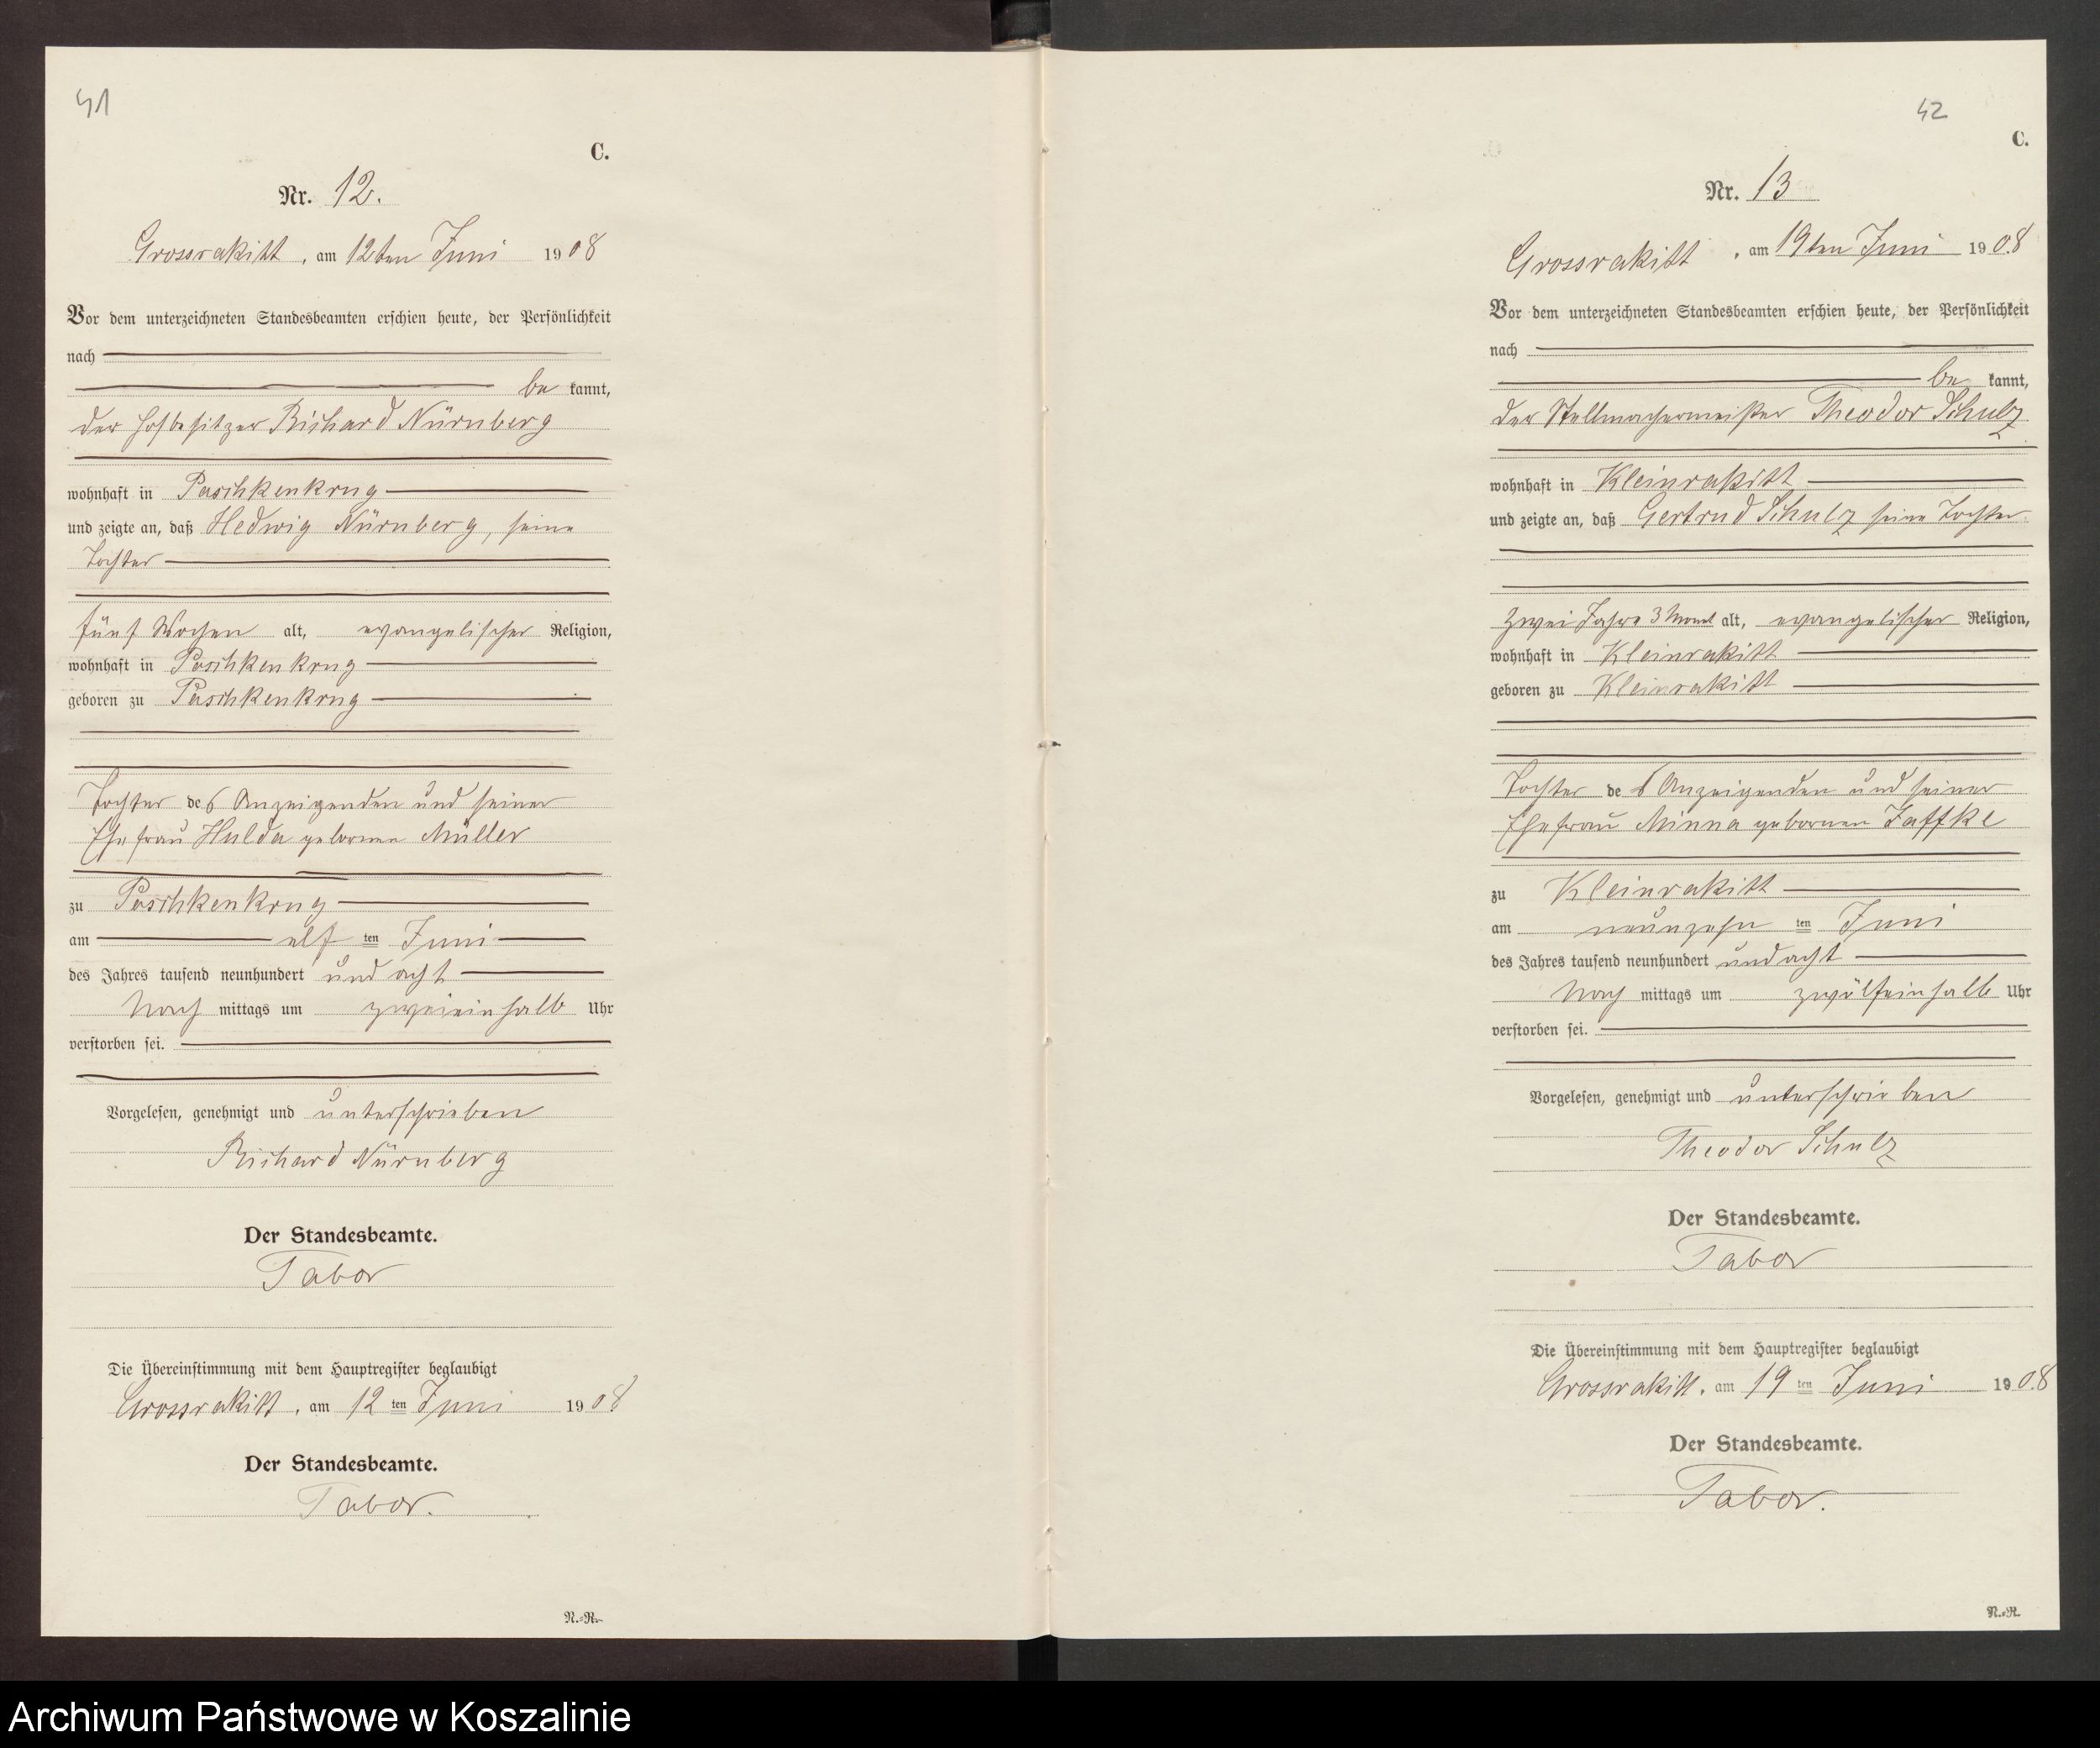 41
C.
Nr. 12.
Grossrakitt, am 12ten Juni 1908
Vor dem unterzeichneten Standesbeamten erschien heute, der Persönlichkeit
nach
be kannt,
der Hofbesitzer Richard Nürnberg
wohnhaft in Paschkenkrug
und zeigte an, daß Hedwig Nürnberg, seine
Tochter
fünf Wochen alt, evangelischer Religion,
wohnhaft in Paschkenkrug
geboren zu Paschkenkrug
Tochter des Anzeigenden und seiner
Ehefrau Hulda geborene Müller
zu Paschkenkrug
am elf ten Juni
des Jahres tausend neunhundert und acht
Nach mittags um zweieinhalb Uhr
verstorben sei.
Vorgelesen, genehmigt und unterschrieben
Richard Nürnberg
Der Standesbeamte.
Tabor
Die Übereinstimmung mit dem Hauptregister beglaubigt
Grossrakitt, am 12 ten Juni 1908
Der Standesbeamte.
Tabor.
N.-R.
42
C.
Nr. 13
Grossrakitt, am 19ten Juni 1908
Vor dem unterzeichneten Standesbeamten erschien heute, der Persönlichkeit
nach
be kannt,
der Stellmachermeister Theodor Schulz
wohnhaft in Kleinrakitt
und zeigte an, daß Gertrud Schulz seine Tochter
zwei Jahre 3 Monat alt, evangelischer Religion,
wohnhaft in Kleinrakitt
geboren zu Kleinrakitt
Tochter des Anzeigenden und seiner
Ehefrau Minna geborenen Jaffke
zu Kleinrakitt
am neunzehn ten Juni
des Jahres tausend neunhundert und acht
Nach mittags um zwölfeinhalb Uhr
verstorben sei.
Vorgelesen, genehmigt und unterschrieben
Theodor Schulz
Der Standesbeamte.
Tabor
Die Übereinstimmung mit dem Hauptregister beglaubigt
Grossrakitt, am 19 ten Juni 1908
Der Standesbeamte.
Tabor.
N.-R.
Archiwum Państwowe w Koszalinie